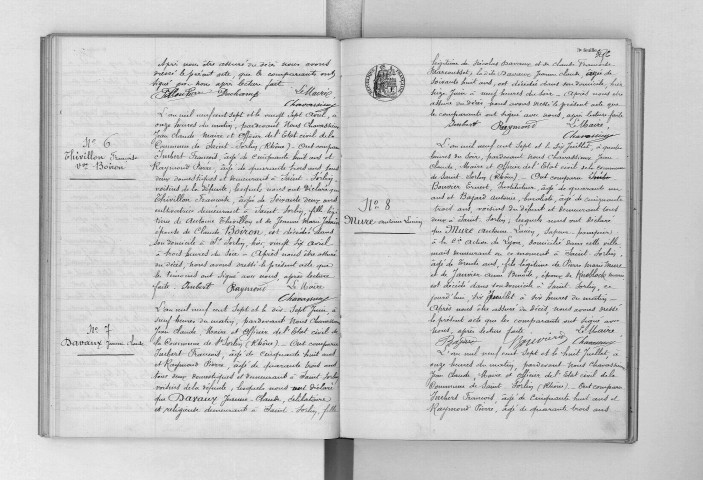 Après nous être assuré du décès nous avons
dressé le présent acte, que les comparants ont
signé avec nous après lecture faite
Le Maire
Chavassieux
N° 6
Thivillon François
Vve Boiron
L'an mil neuf cent sept et le vingt sept Avril, à
onze heures du matin, pardevant Nous Chavassieux
Jean Claude Maire et Officier de l'Etat civil de la
Commune de Saint-Sorlin (Rhône) – Ont comparu
Imbert François, âgé de cinquante huit ans et
Raymond Pierre, âgé de quarante trois ans tous
deux domestiques et demeurant à Saint-Sorlin,
voisins de la défunte, lesquels nous ont déclaré que
Thivillon François, âgée de soixante deux ans,
cultivatrice demeurant à Saint-Sorlin, fille légi-
time de Antoine Thivillon et de Jeanne Marie
épouse de Claude Boiron, est décédée dans
son domicile à St Sorlin, hier, vingt six avril
à trois heures du soir – Après nous être assuré
du décès, nous avons dressé le présent acte que
les témoins ont signé avec nous, après lecture
faite. Imbert Raymond Le Maire
Chavassieux
N° 7
Davaux Jeanne Claude
L'an mil neuf cent sept et le dix sept Juin, à
neuf heures du matin, pardevant Nous Chavassieux
Jean Claude, Maire et Officier de l'Etat civil de
la Commune de St Sorlin (Rhône) – Ont comparu
Imbert François, âgé de cinquante huit ans et
Raymond Pierre, âgé de quarante trois ans
tous deux domestiques et demeurant à Saint-Sorlin
voisins de la défunte, lesquels nous ont déclaré
que Davaux Jeanne-Claude, célibataire
et religieuse demeurant à Saint-Sorlin, fille
légitime de Nicolas Davaux et de Claude Françoise
la dite Davaux Jeanne Claude, âgée de
soixante huit ans, est décédée dans son domicile, hier
seize Juin à neuf heures du soir – Après nous être
assuré du décès, nous avons dressé le présent acte que
les comparants ont signé avec nous, après lecture faite
Imbert Raymond Le Maire
Chavassieux
N° 8
Mure Antoine Lucien
L'an mil neuf cent sept et le dix Juillet, à quatre
heures du soir, pardevant Nous Chavassieux Jean
Claude, Maire et Officier de l'Etat civil de la commune
de Saint-Sorlin (Rhône) – Ont comparu
Bouvier Ernest, Instituteur, âgé de quarante un
ans et Bajard Antoine, âgé de cinquante
trois ans, voisins du défunt et demeurant tous
deux à Saint-Sorlin, lesquels nous ont déclaré
que Mure Antoine Lucien, Sapeur-pompier,
de Lyon, domicilié dans cette ville
mais demeurant en ce moment à Saint-Sorlin,
âgé de trente ans, fils légitime de Pierre Jean Mure
et de
est décédé dans son domicile à Saint-Sorlin, ce
jourd'hui, dix Juillet à dix heures du matin –
Après nous être assuré du décès, nous avons dressé
le présent acte que les comparants ont signé avec
nous, après lecture faite. Le Maire
Bouvier Chavassieux
L'an mil neuf cent sept et le huit Juillet, à
onze heures du matin, pardevant Nous Chavassieux
Jean Claude, Maire et Officier de l'Etat civil de la
Commune de Saint-Sorlin (Rhône) – Ont comparu
Imbert François, âgé de cinquante huit ans et
Raymond Pierre, âgé de quarante trois ans